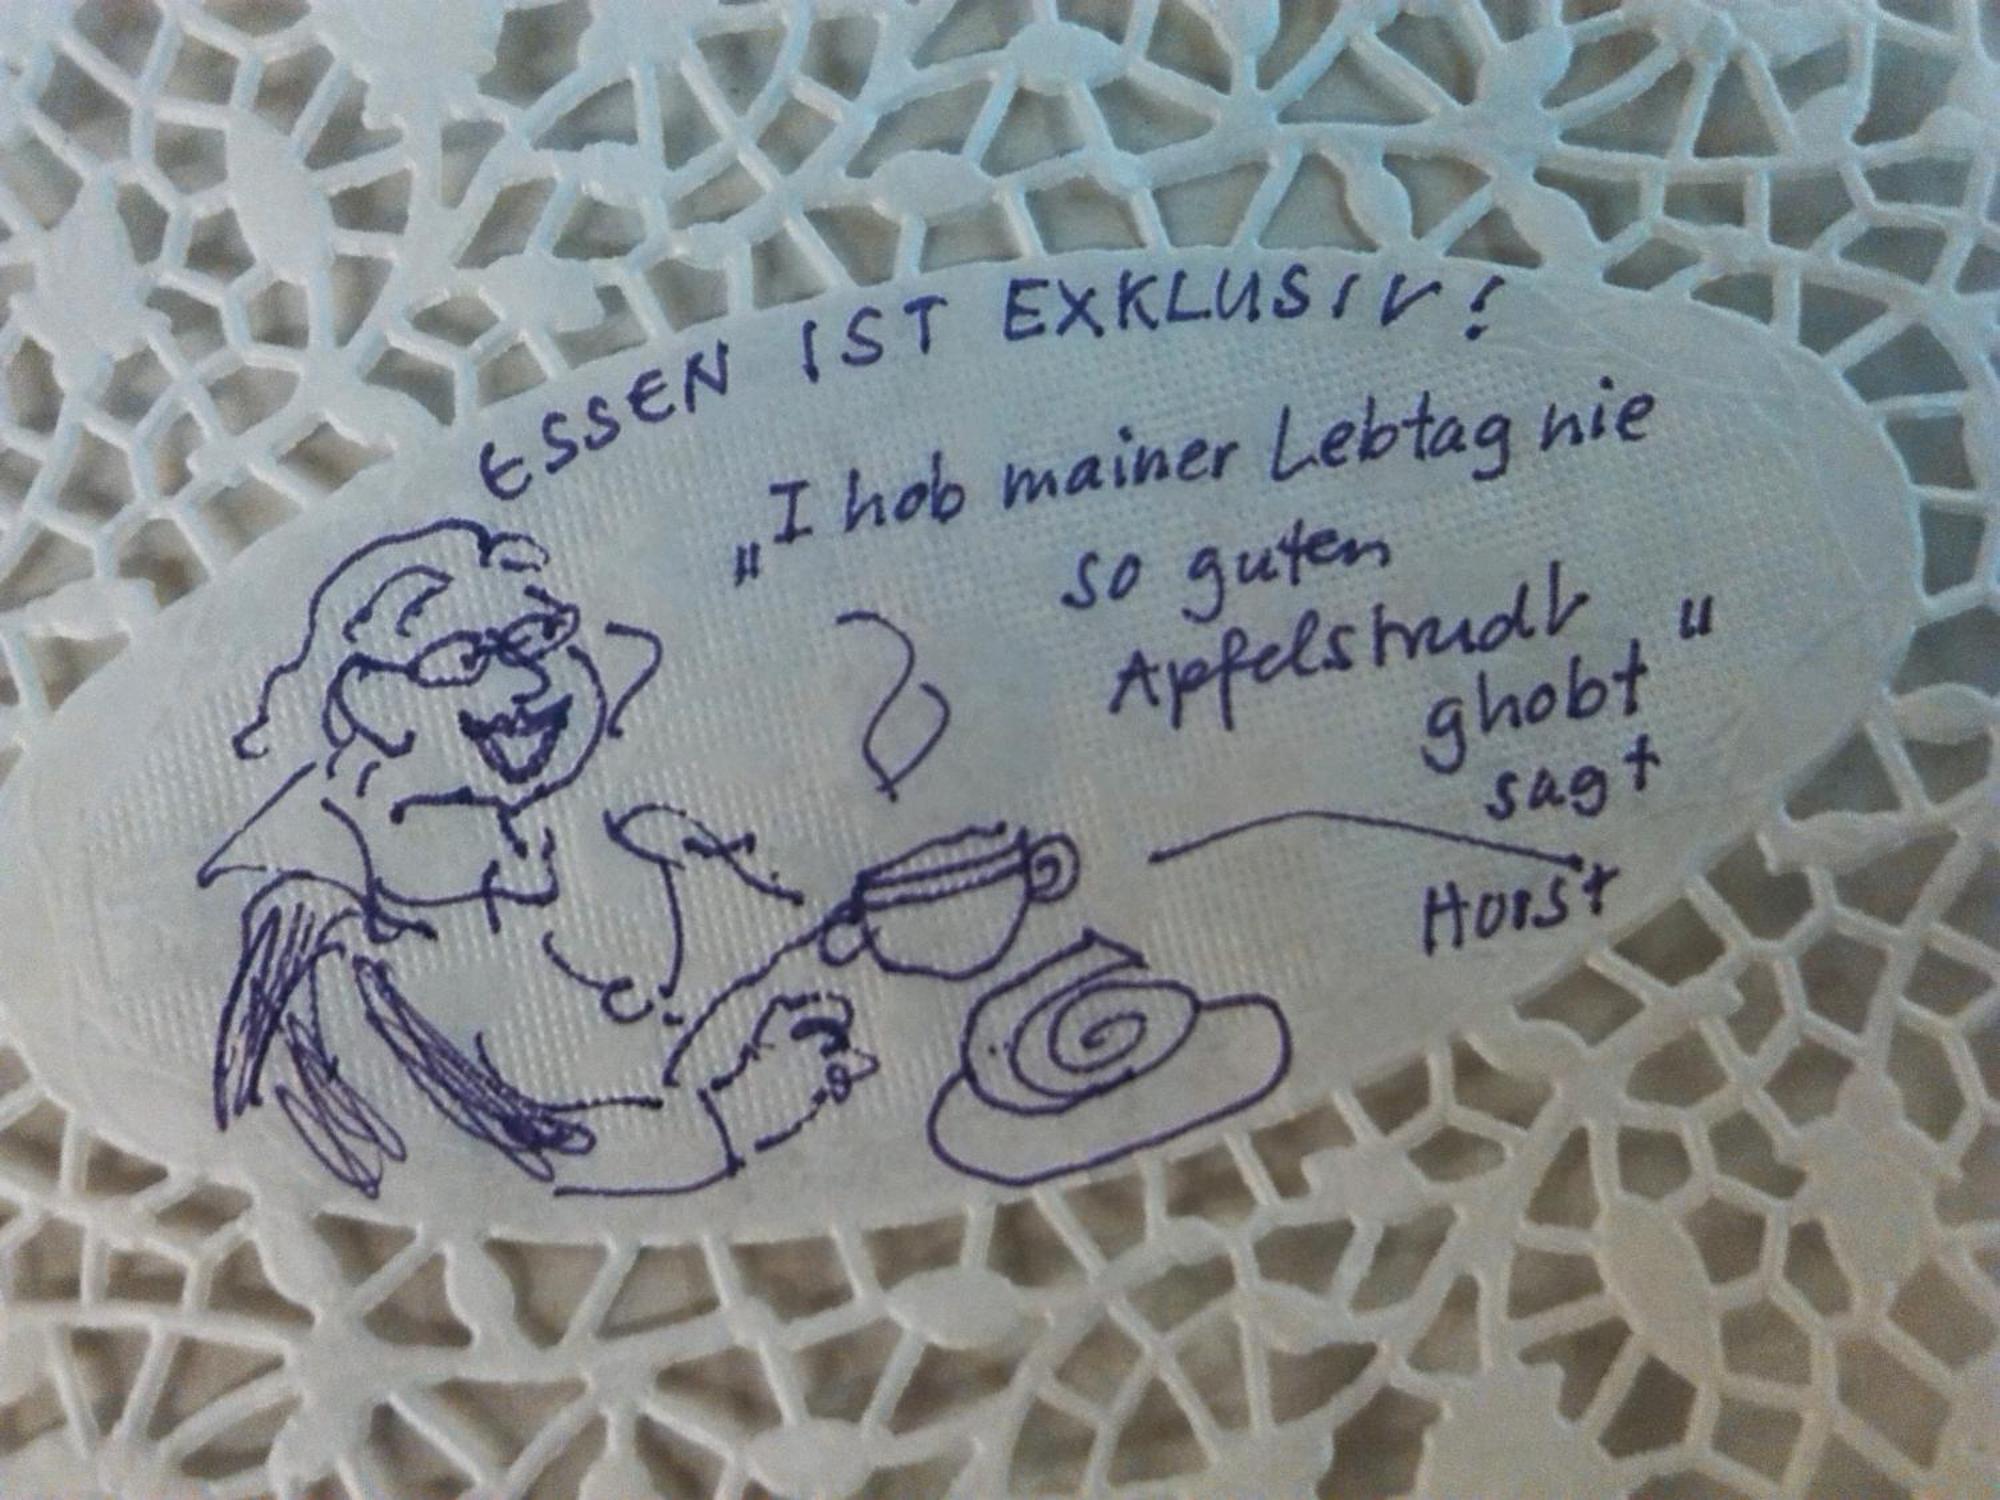 ESSEN IST EXKLUSIV!
„I hob mainer Lebtag nie
so guten
Apfelstrudl
ghobt,"
sagt
Horst